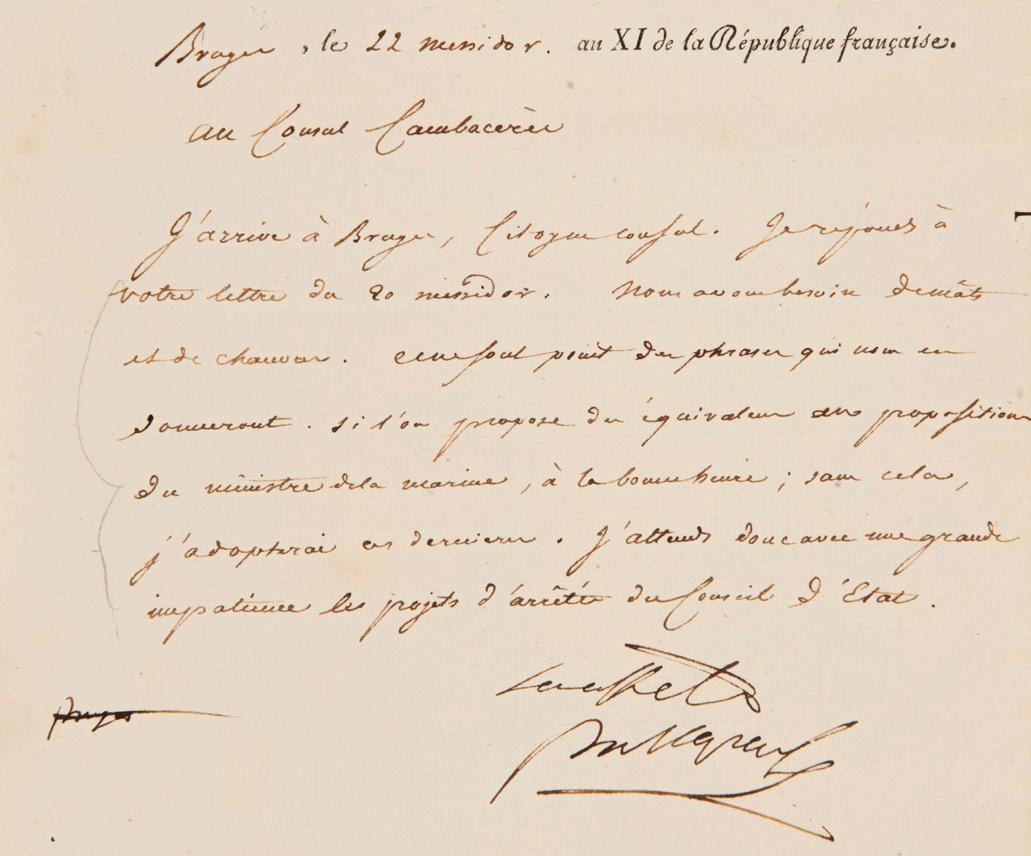 Bruges, le 22 messidor. an XI de la République française.
au Consul Cambacérès
J'arrive à Bruges, Citoyen consul. Je réponds à
votre lettre du 20 messidor. Nous avons besoin de mâts
et de chanvres. ce ne sont point des phrases qui nous en
donneront. si l'on propose des équivalens aux propositions
du ministre de la marine, à la bonne heure; sans cela,
j'adopterai ces dernieres. J'attends donc avec une grande
impatience les projets d'arrêtés du Conseil d'État.
Bonaparte